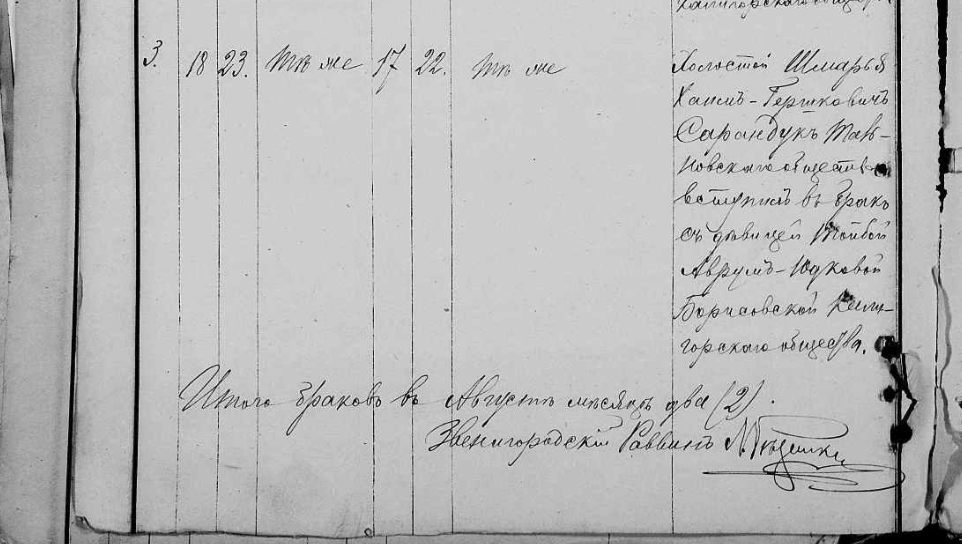 3. 18 23. тѣ же 17 22. тѣ же
Холостой Шмарья
Хаимъ-Гершковичъ
Сарандукъ Тав-
новскаго общества
вступилъ въ бракъ
съ дѣвицей Тойбой
Аврумъ-Юдковой
Борисовской Кали-
горскаго общества.
Итого браковъ въ Августѣ мѣсяцѣ два (2).
Звенигородскій Раввинъ